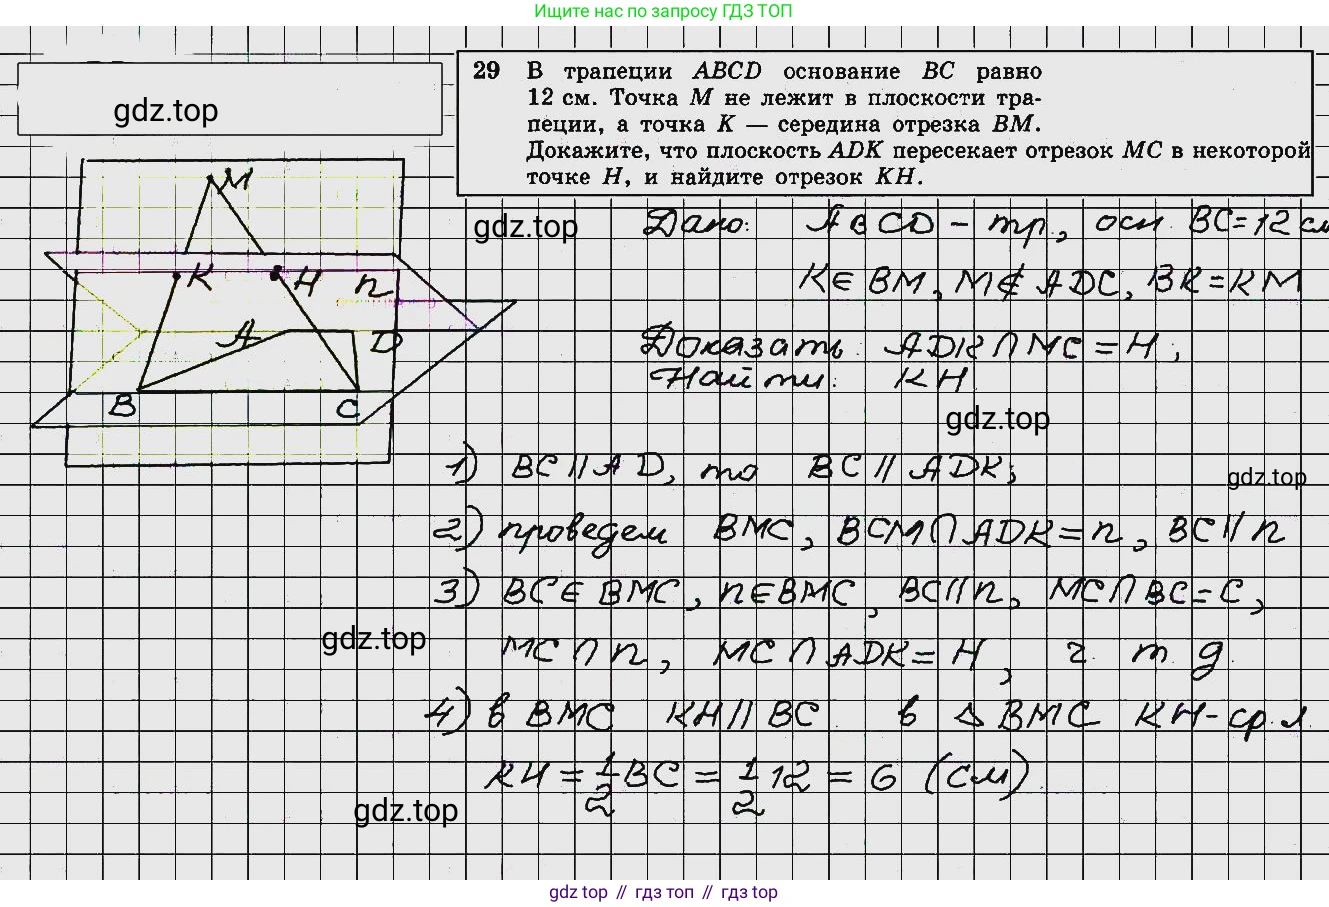 Ищите нас по запросу ГДЗ ТОП
gdz.top
29 В трапеции ABCD основание BC равно
12 см. Точка M не лежит в плоскости тра-
пеции, а точка K — середина отрезка BM.
Докажите, что плоскость ADK пересекает отрезок MC в некоторой
точке H, и найдите отрезок KH.
M
K H n
A D
B C
gdz.top
Дано: ABCD - тр., осн. BC=12 см
K∈BM, M∉ADC, BK=KM
Доказать: ADK∩MC=H;
Найти: KH
gdz.top
1) BC∥AD, то BC∥ADK;
gdz.top
2) проведем BMC, BCM∩ADK=n, BC∥n
3) BC∈BMC, n∈BMC, BC∥n, MC∩BC=C,
gdz.top
MC∩n, MC∩ADK=H, ч т д.
4) в BMC KH∥BC. в △BMC KH-ср.л.
KH=1/2BC=1/2 12=6 (см)
gdz.top
gdz top // гдз топ // gdz top